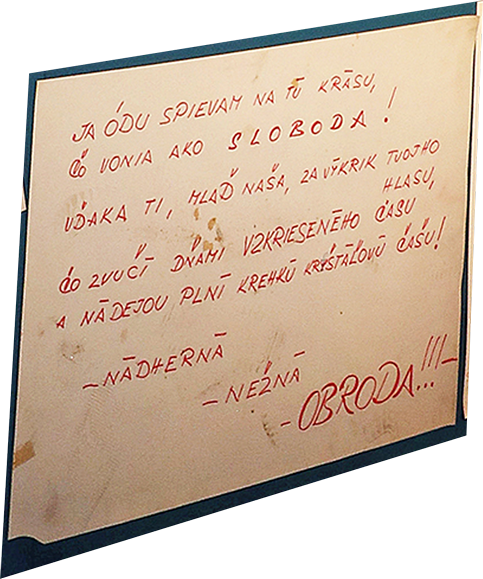 JA ÓDU SPIEVAM NA TÚ KRÁSU,
ČO VONIA AKO SLOBODA!
VĎAKA TI, MLAĎ NAŠA, ZA VÝKRIK TVOJHO
HLASU,
ČO ZVUČÍ DŇAMI VZKRIESENÉHO ČASU
A NÁDEJOU PLNÍ KREHKÚ KRYŠTÁĽOVÚ ČAŠU!
– NÁDHERNÁ
– NEŽNÁ
– OBRODA...!!! –